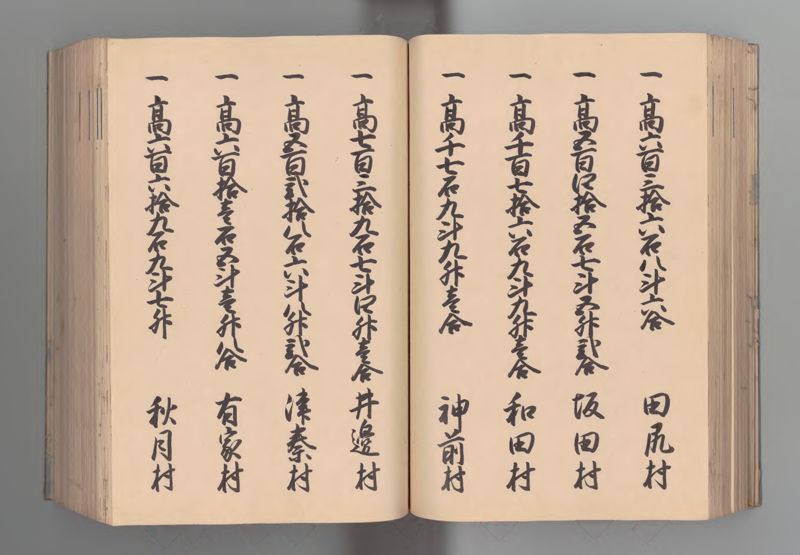 一 高六百三拾六石八斗六合 田尻村
一 高五百四拾五石七斗五升弐合 坂田村
一 高千百七拾六石九斗九升壱合 和田村
一 高千七石九斗九升壱合 神前村
一 高七百三拾九石七斗四升壱合 井邊村
一 高五百弐拾八石六斗八升弐合 津秦村
一 高六百拾壱石五斗壱升八合 有家村
一 高六百六拾九石九斗七升 秋月村